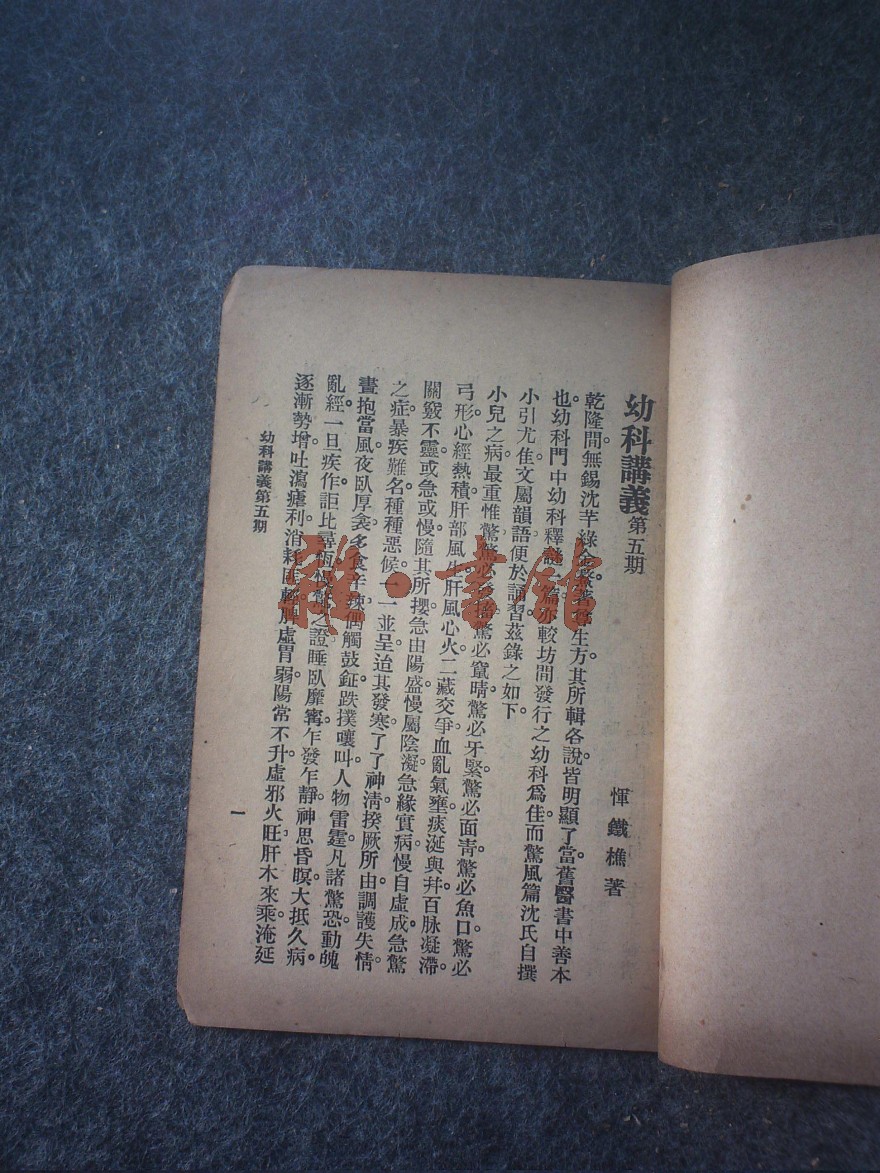 幼科講義第五期
惲鐵樵著
乾隆間無錫沈芊綠金鰲著尊生方其所輯各說皆明顯了當舊醫書中善本
也。幼科門中幼科釋謎一篇亦較坊間發行之幼科爲佳而驚風篇沈氏自撰
小引尤佳文屬韻語便於誦習茲錄之如下
小兒之病最重惟驚驚必發搐驚必竄睛驚必牙緊驚必面靑驚必魚口驚必
弓形心經熱積肝部風生肝風心火二藏交爭血亂氣壅痰涎與幷百脉凝滯。
關竅不靈或急或慢隨其所攖急由陽盛慢屬陰凝急緣實病慢自虛成急驚
之症暴疾難名種種惡候一一並呈迨其發寒了了神淸揆厥所由調護失情
晝抱當風夜臥厚衾多食辛辣偶觸鼓鉦跌撲嚷叫人物雷霆凡諸驚恐動魄
亂經。一旦疾作詎比尋恆慢驚之證睡臥靡甯乍發乍靜神思昏暝大抵久病。
逐漸勢增吐瀉瘧利消耗匪輕脾虛胃弱陽常不升虛邪火旺肝木來乘淹延
幼科講義第五期
一
雜·書館